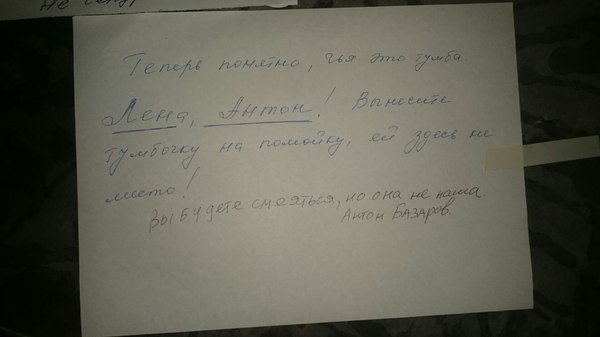 не
Теперь понятно, чья это тумба
Лена, Антон! Вынесите
тумбочку на помойку, ей здесь не
место!
Вы будете смеяться, но она не наша
Антон Базаров.